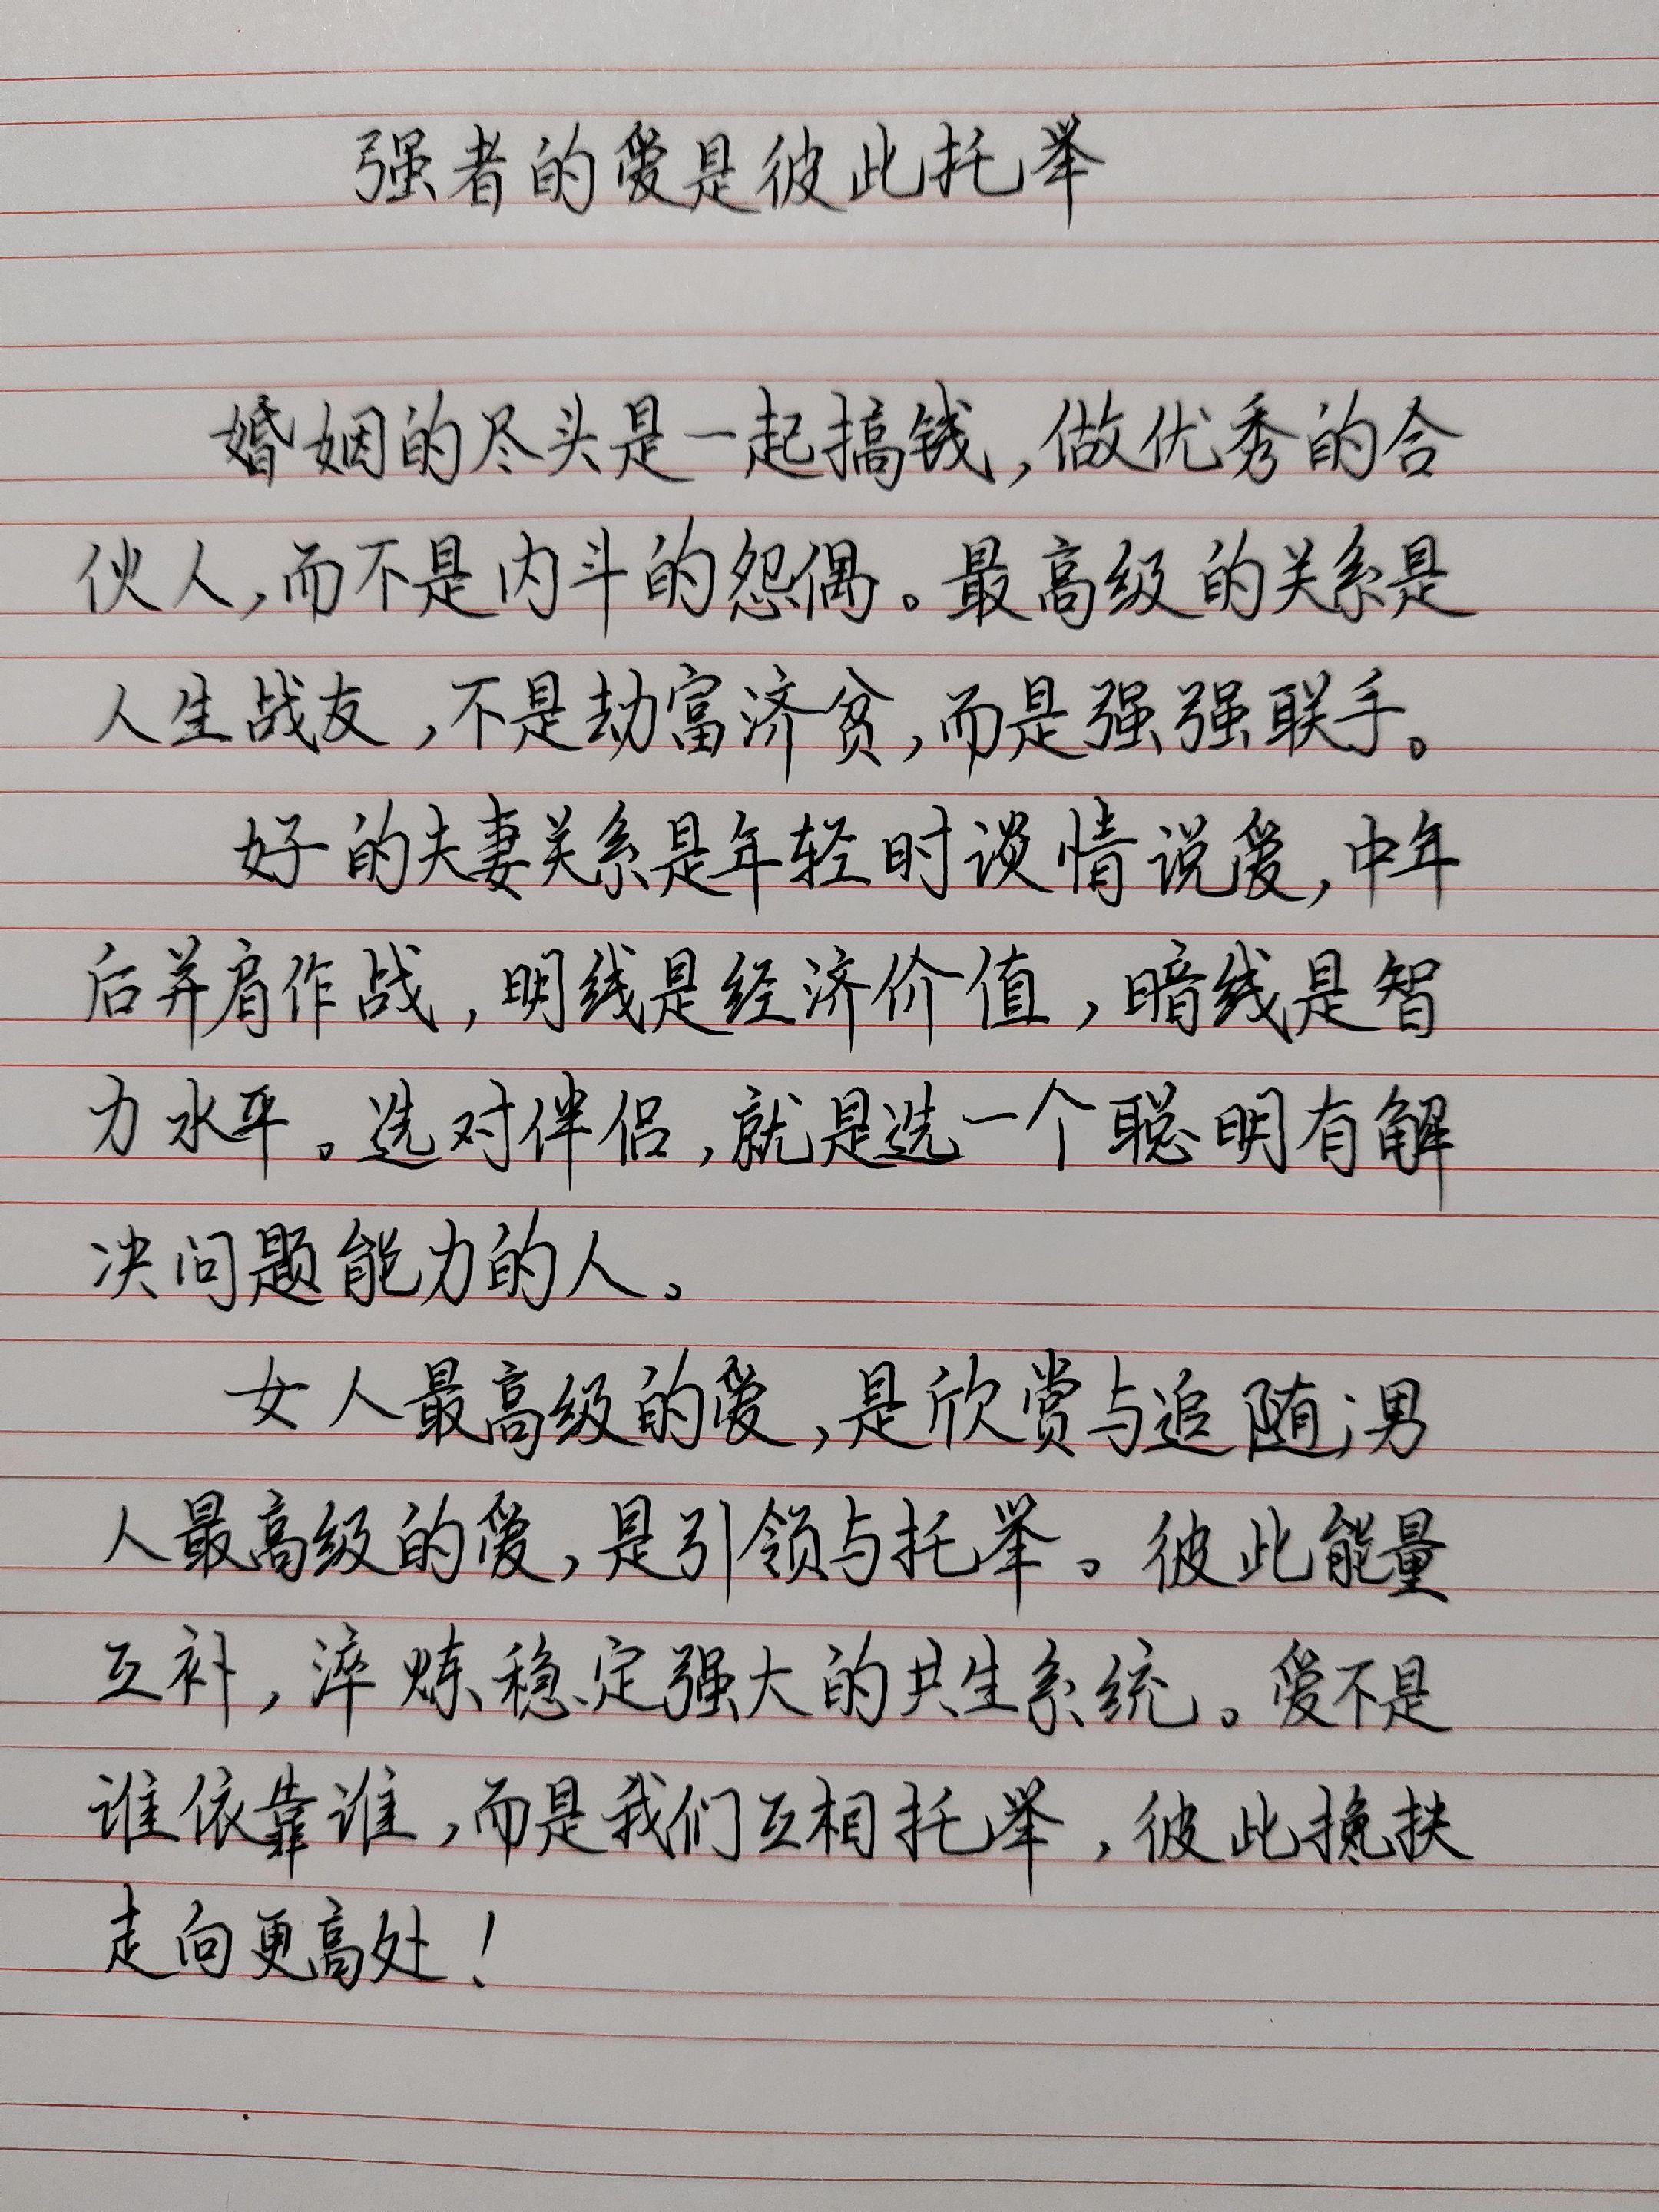 强者的爱是彼此托举
婚姻的尽头是一起搞钱，做优秀的合
伙人，而不是内斗的怨偶。最高级的关系是
人生战友，不是劫富济贫，而是强强联手。
好的夫妻关系是年轻时谈情说爱，中年
后并肩作战，明线是经济价值，暗线是智
力水平。选对伴侣，就是选一个聪明有解
决问题能力的人。
女人最高级的爱，是欣赏与追随；男
人最高级的爱，是引领与托举。彼此能量
互补，淬炼稳定强大的共生系统。爱不是
谁依靠谁，而是我们互相托举，彼此搀扶
走向更高处！